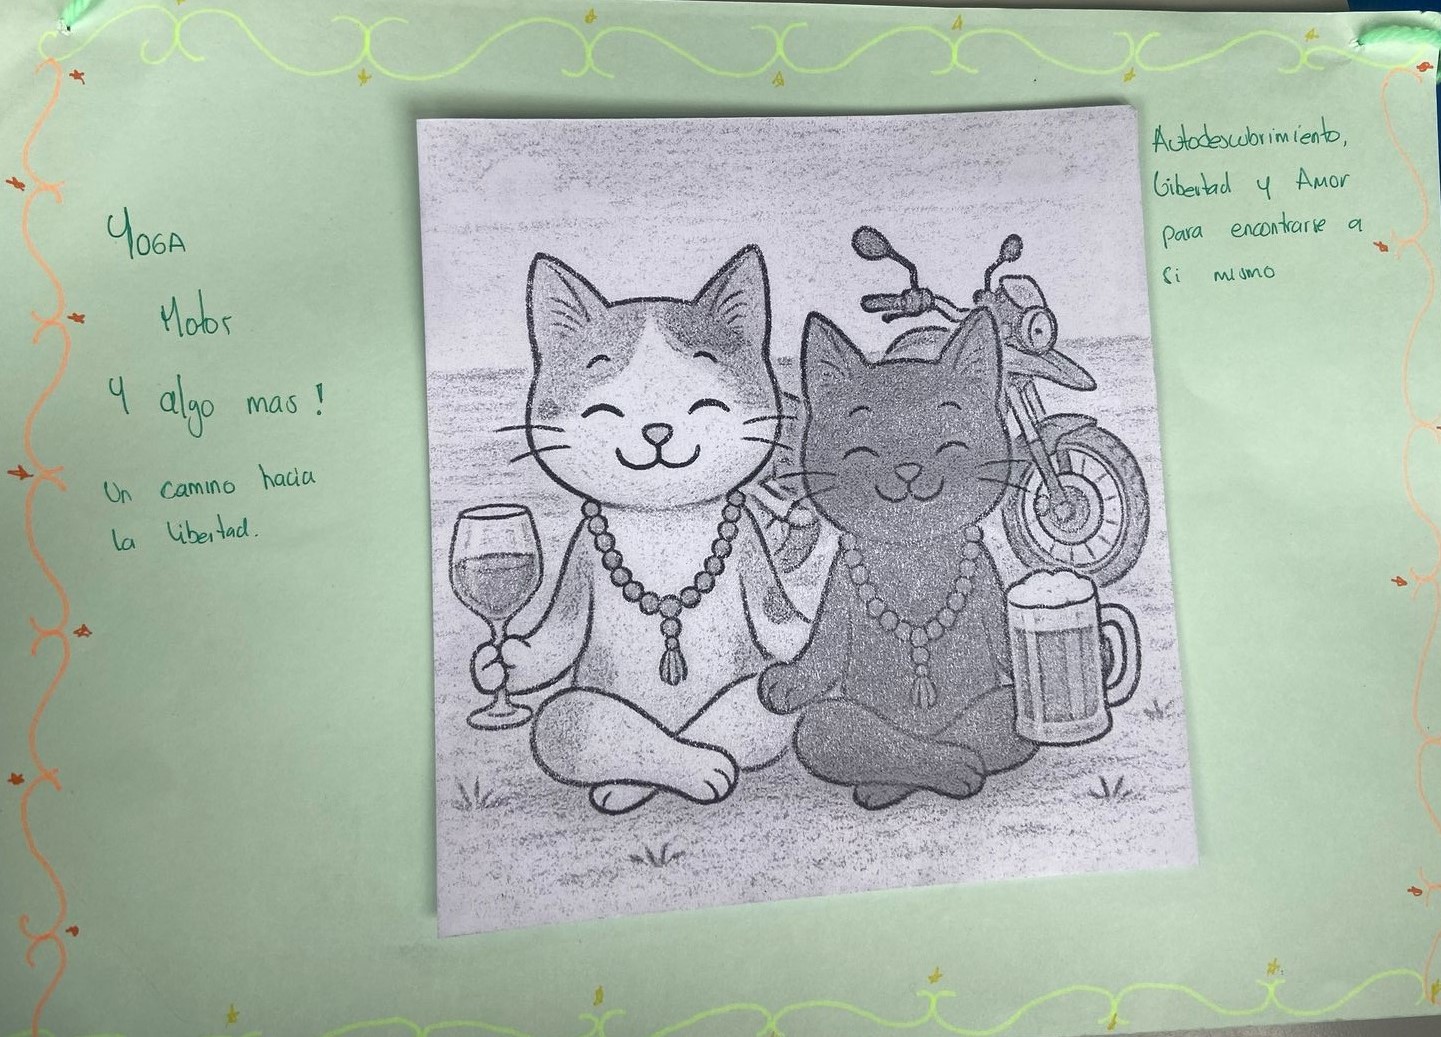 YOGA
Motor
Y algo mas!
Un camino hacia
la libertad.
Autodescubrimiento,
libertad y Amor
para encontrarse a
si mismo